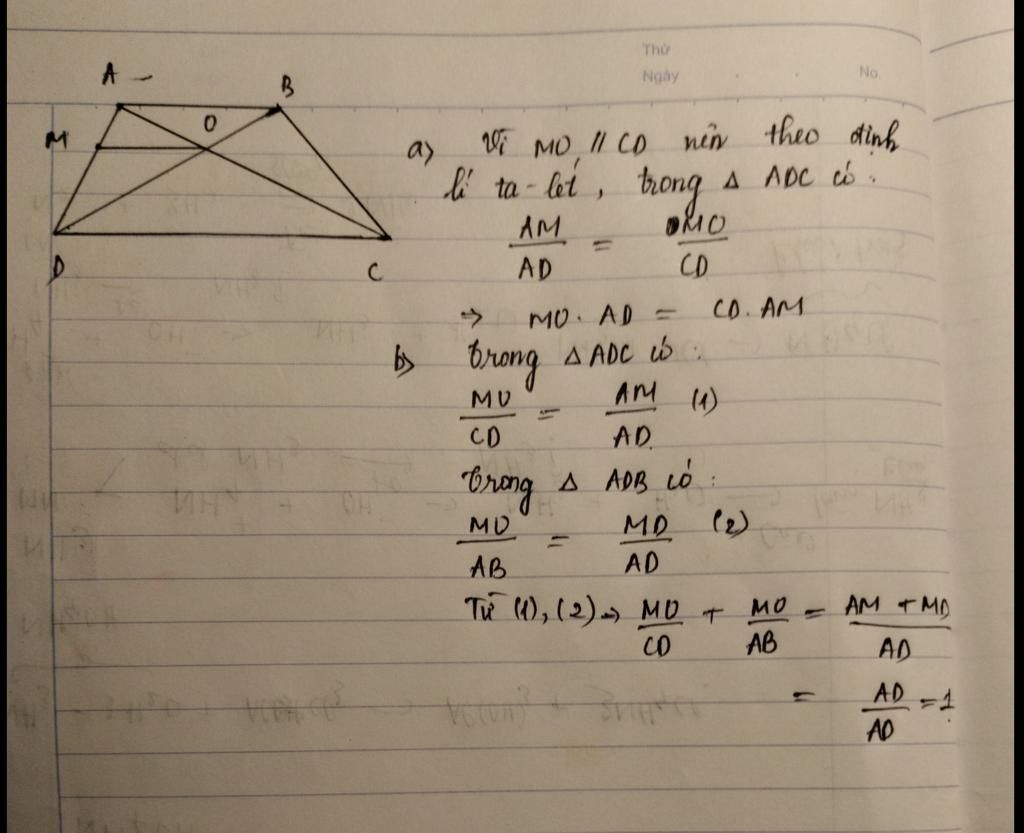 Thứ
Ngày . . No.
A
B
M
O
D
C
a) Vì MO // CD nên theo định
lí ta-lét, trong Δ ADC có:
AM/AD = MO/CD
=> MO . AD = CD . AM
b) Trong Δ ADC có:
MO/CD = AM/AD (1)
Trong Δ ADB có:
MO/AB = MD/AD (2)
Từ (1), (2) => MO/CD + MO/AB = AM + MD/AD
= AD/AD = 1